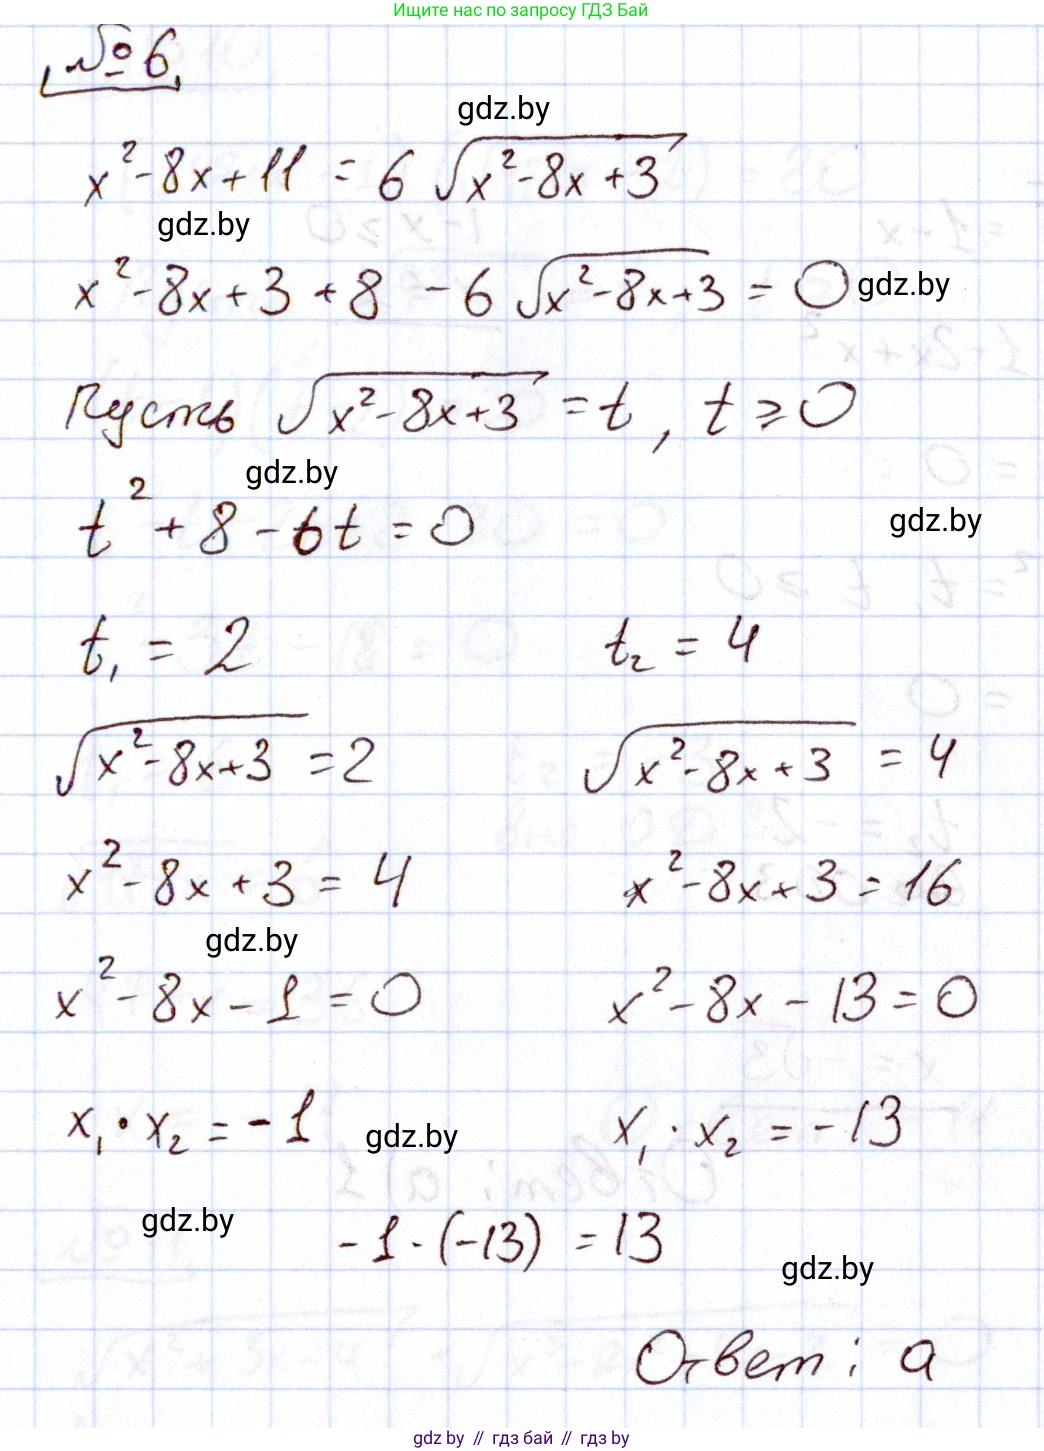 Ищите нас по запросу ГДЗ Бай
№ 6
gdz.by
x² - 8x + 11 = 6 √(x² - 8x + 3)
gdz.by
x² - 8x + 3 + 8 - 6 √(x² - 8x + 3) = 0 gdz.by
Пусть √(x² - 8x + 3) = t, t ≥ 0
gdz.by
t² + 8 - 6t = 0
gdz.by
t₁ = 2 t₂ = 4
√(x² - 8x + 3) = 2 √(x² - 8x + 3) = 4
x² - 8x + 3 = 4 x² - 8x + 3 = 16
gdz.by
x² - 8x - 1 = 0 x² - 8x - 13 = 0
x₁ · x₂ = -1 x₁ · x₂ = -13
gdz.by
gdz.by
-1 · (-13) = 13
gdz.by
Ответ: а
gdz by // гдз бай // gdz by